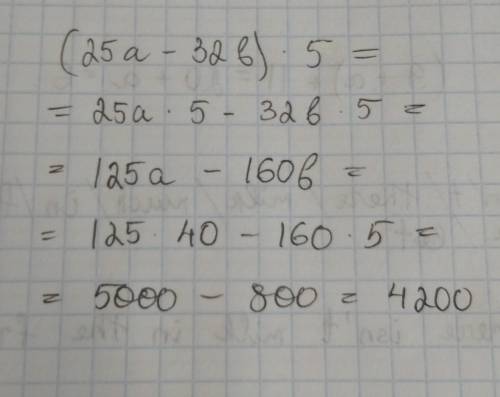 (25а - 32в) · 5 =
= 25а · 5 - 32в · 5 =
= 125а - 160в =
= 125 · 40 - 160 · 5 =
= 5000 - 800 = 4200